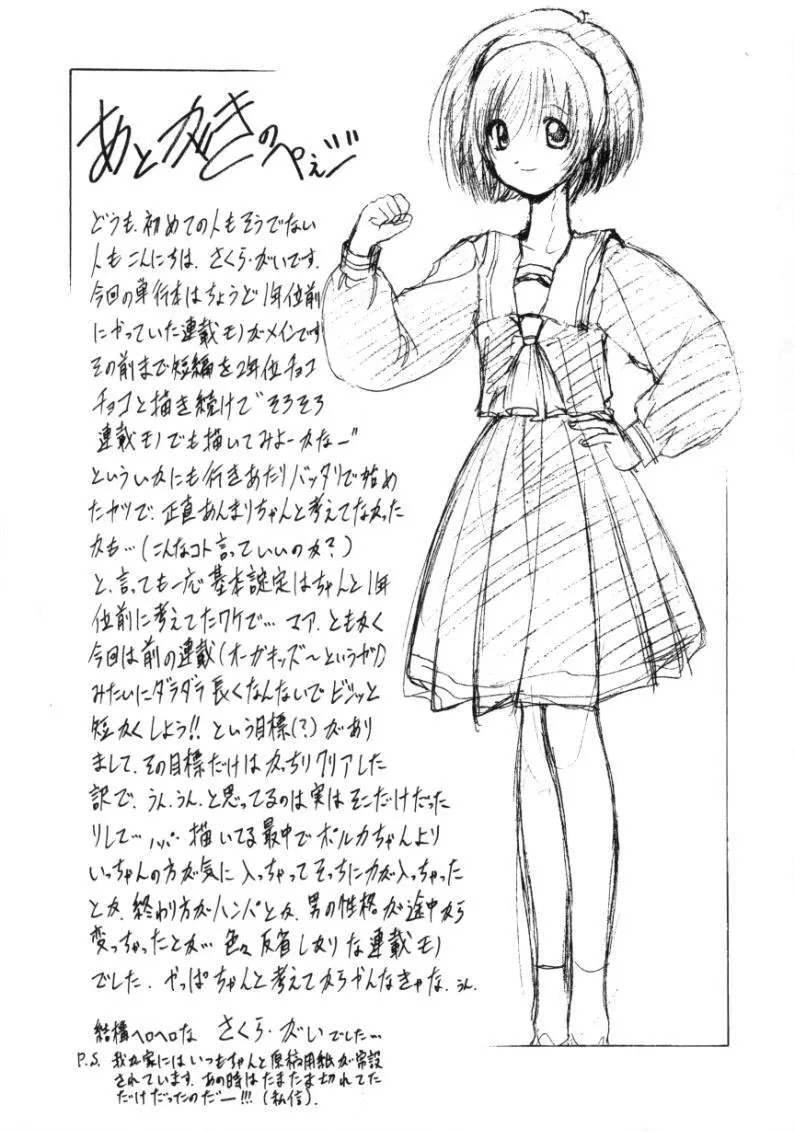 あとがきのぺぇジ
どうも、初めての人もそうでない
人もこんにちは、さくら・がいです。
今回の単行本はちょうど1年位前
にやっていた連載モノがメインです
その前まで短編を2年位チョコ
チョコと描き続けて"そろそろ
連載モノでも描いてみよーかなー"
といういかにも行きあたりバッタリで始め
たヤツで、正直あんまりちゃんと考えてなかった
かも…(こんなコト言っていいのか?)
と、言っても一応基本設定はちゃんと1年
位前に考えてたワケで… マア、ともかく
今回は前の連載(オーガキッズ〜というヤツ)
みたいにダラダラ長くなんないでビシッと
短かくしよう!! という目標(?)があり
まして、その目標だけはかっちりクリアした
訳で、うん、うん、と思ってるのは実はそこだけだった
りして… 描いてる最中でポルカちゃんより
いっちゃんの方が気に入っちゃってそっちに力が入っちゃった
とか、終わり方がハンパとか、男の性格が途中から
変っちゃったとか… 色々反省しきりな連載モノ
でした。やっぱちゃんと考えてからかんなきゃな、うん。
結構ヘロヘロな さくら・がいでした…
P.S. 我が家にはいつもちゃんと原稿用紙が常設
されています。あの時はたまたま切れてた
だけだったのだー!!! (私信).